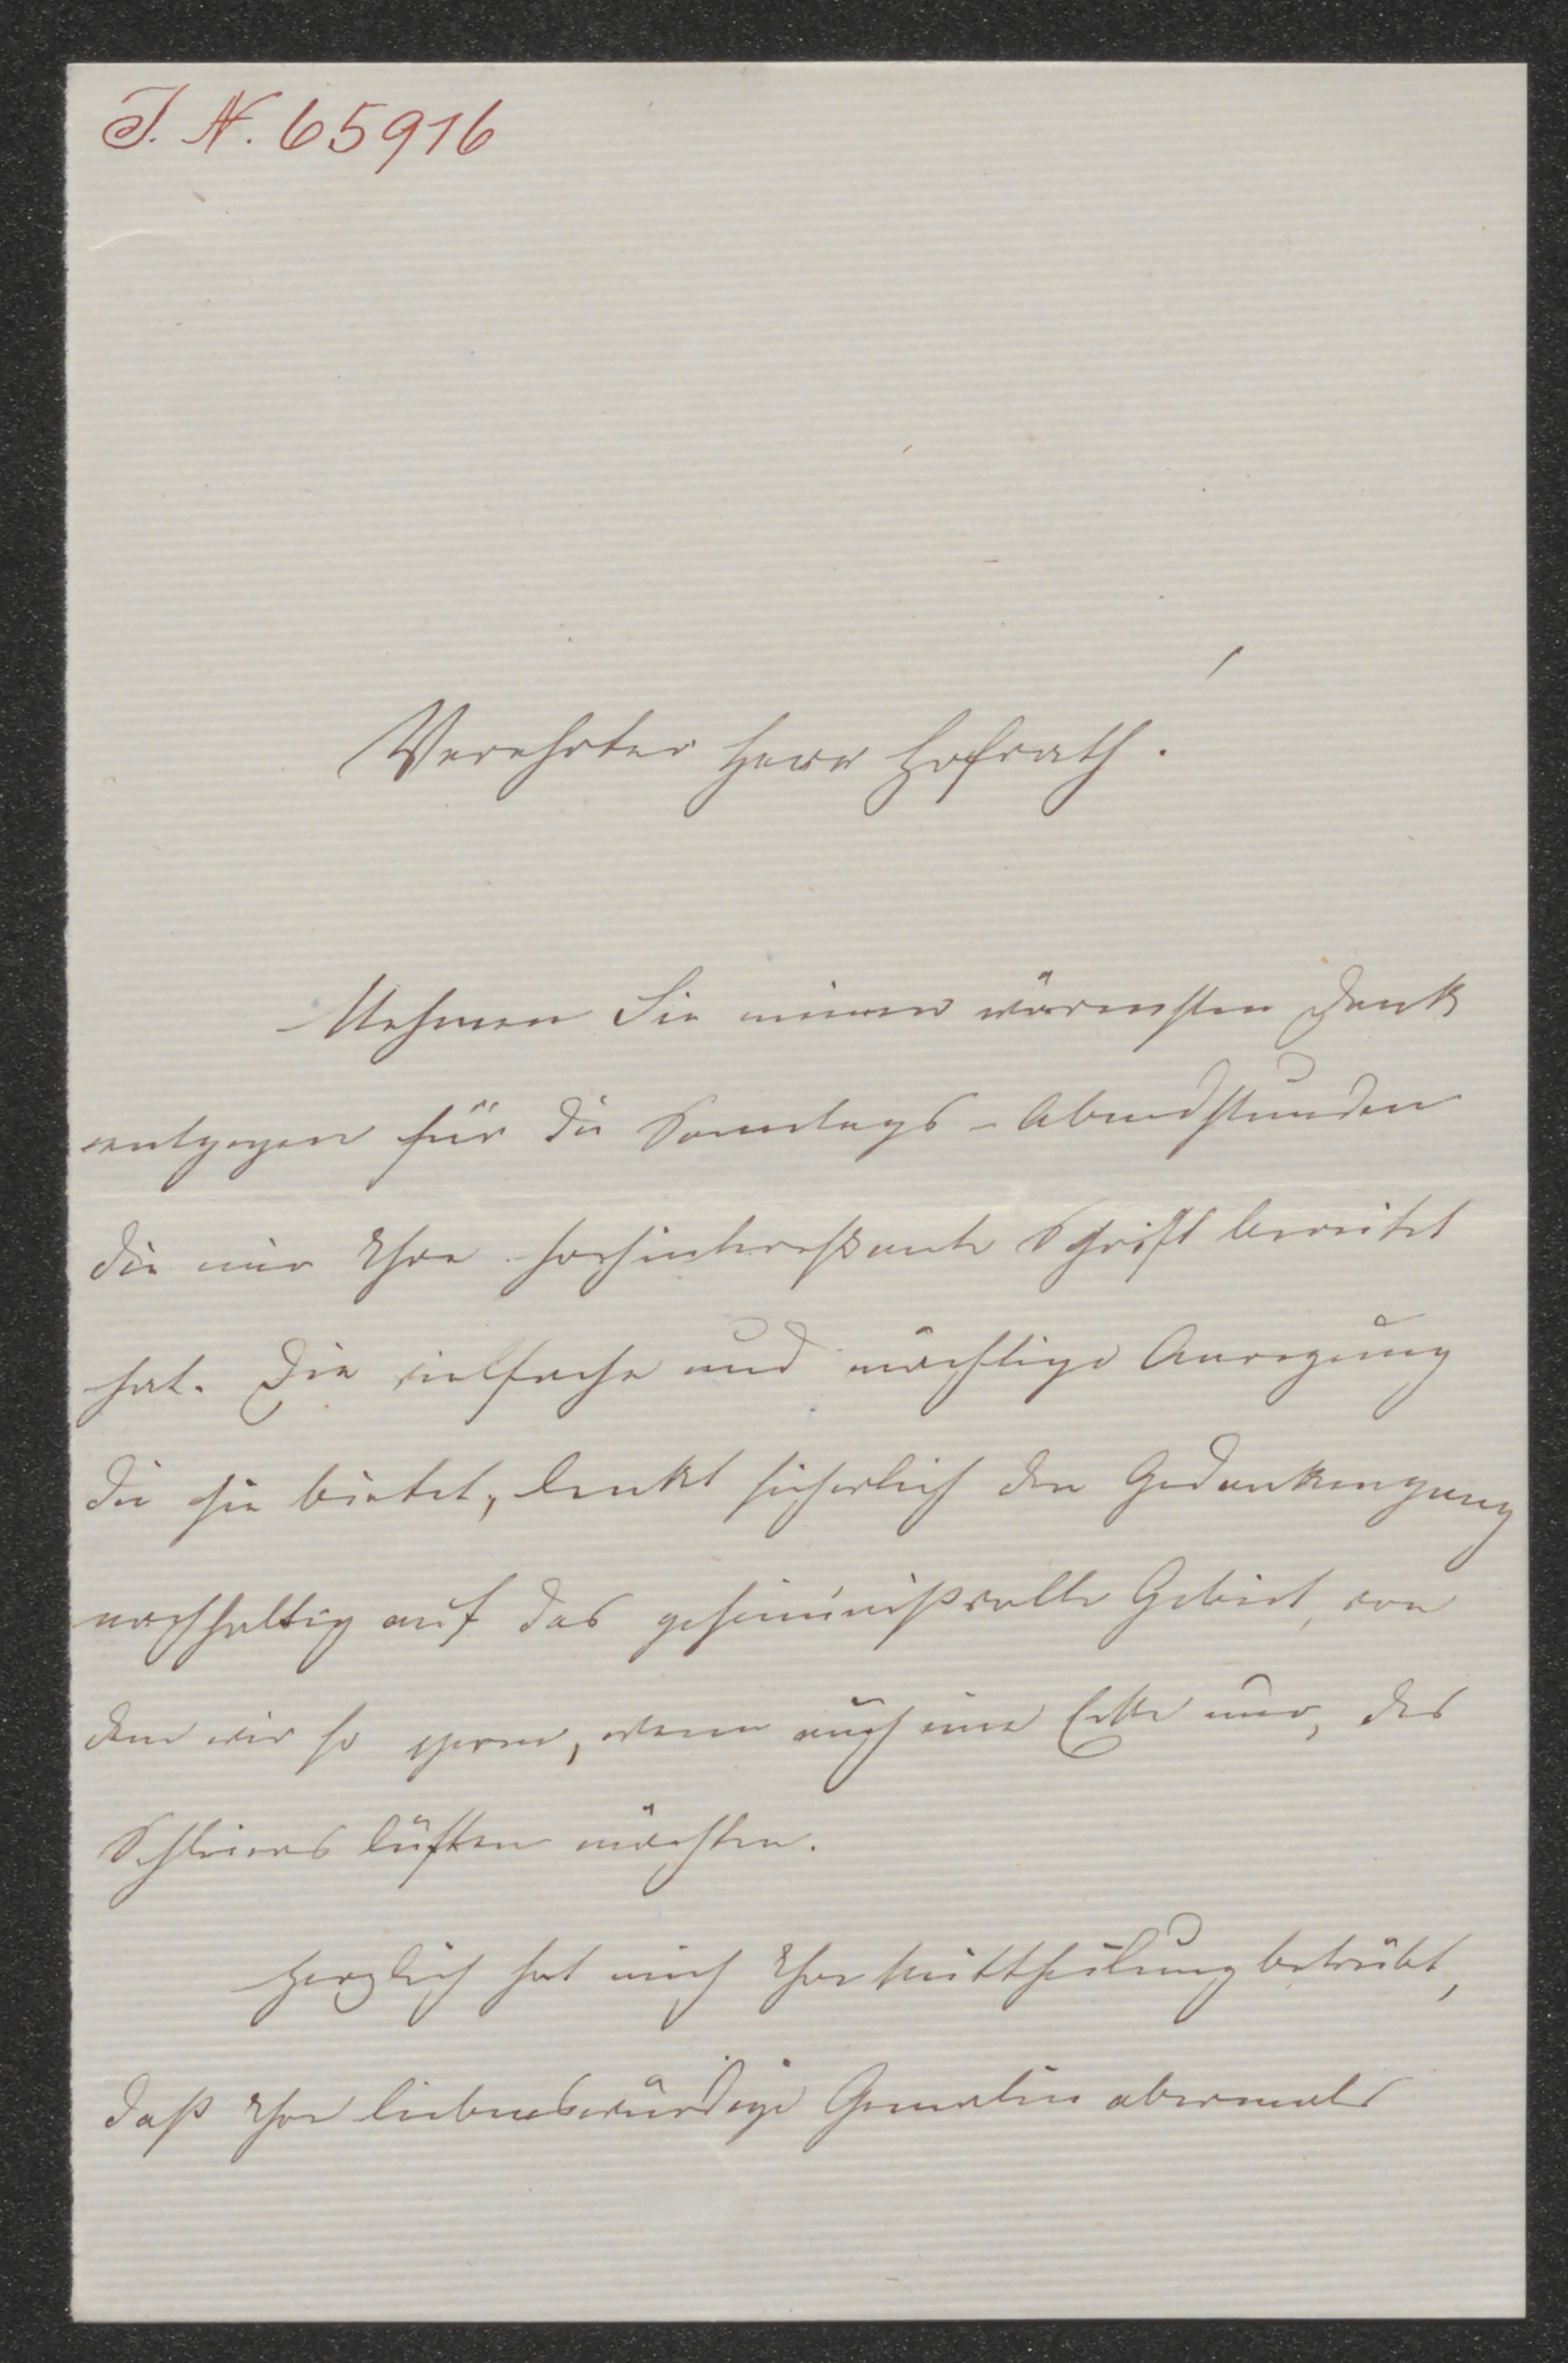 J. N. 65916
Verehrter Herr Hofrath!
Nehmen Sie meinen wärmsten Dank
entgegen für die Sonntags-Abendstunden
die mir Ihre hochinteressante Schrift bereitet
hat. Die vielfache und mächtige Anregung
die sie bietet, lenkt sicherlich den Gedankengang
nachhaltig auf das geheimnißvolle Gebiet, von
dem wir so gerne, wenn auch eine Ecke nur, des
Schleiers lüften möchten.
Herzlich hat mich Ihre Mittheilung betrübt,
daß Ihre liebenswürdige Gemalin abermals